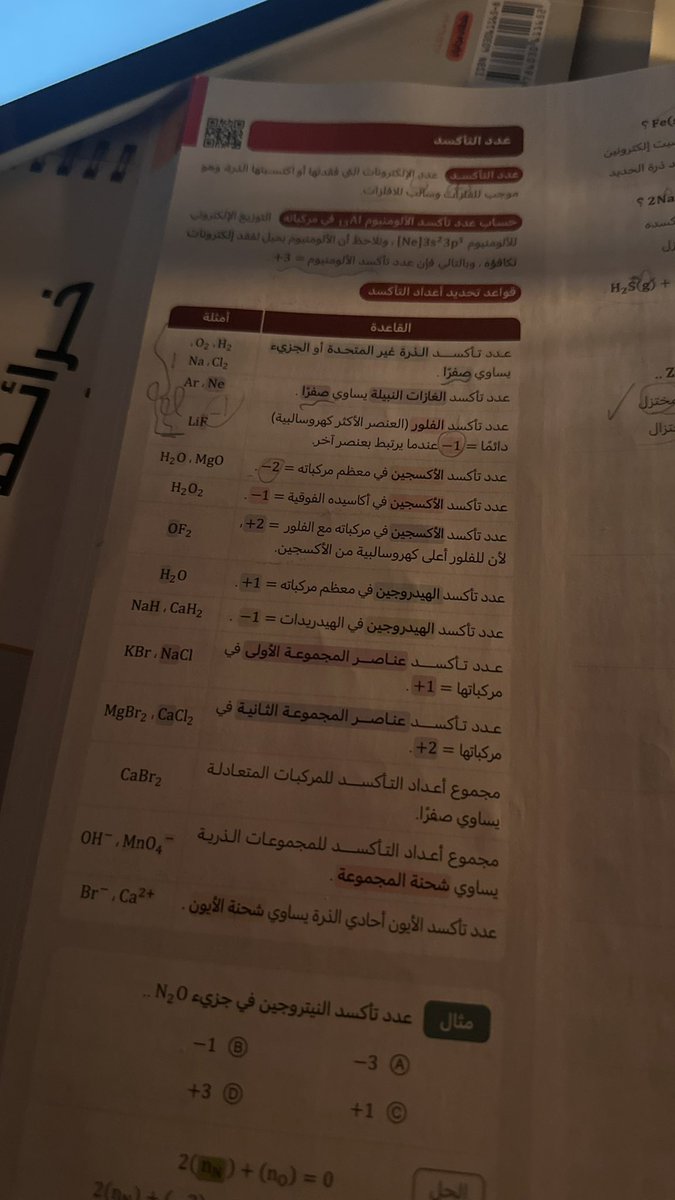 عدد التأكسد
عدد التأكسد عدد الإلكترونات التي فقدتها أو اكتسبتها الذرة وهو
موجب للفلزات وسالب للافلزات.
حساب عدد تأكسد الألومنيوم ₁₃Al في مركباته التوزيع الإلكتروني
للألومنيوم [Ne]3s²3p¹، ونلاحظ أن الألومنيوم يميل لفقد إلكترونات
تكافؤه. وبالتالي فإن عدد تأكسد الألومنيوم = +3
قواعد تحديد أعداد التأكسد
القاعدة أمثلة
عدد تأكسد الذرة غير المتحدة أو الجزيء O₂، H₂،
يساوي صفرًا. Na، Cl₂
عدد تأكسد الغازات النبيلة يساوي صفرًا. Ar، Ne
عدد تأكسد الفلور (العنصر الأكثر كهروسالبية) LiF
دائمًا = −1 عندما يرتبط بعنصر آخر.
عدد تأكسد الأكسجين في معظم مركباته = −2. H₂O، MgO
عدد تأكسد الأكسجين في أكاسيده الفوقية = −1. H₂O₂
عدد تأكسد الأكسجين في مركباته مع الفلور = +2، OF₂
لأن للفلور أعلى كهروسالبية من الأكسجين.
عدد تأكسد الهيدروجين في معظم مركباته = +1. H₂O
عدد تأكسد الهيدروجين في الهيدريدات = −1. NaH، CaH₂
عدد تأكسد عناصر المجموعة الأولى في KBr، NaCl
مركباتها = +1.
عدد تأكسد عناصر المجموعة الثانية في MgBr₂، CaCl₂
مركباتها = +2.
مجموع أعداد التأكسد للمركبات المتعادلة CaBr₂
يساوي صفرًا.
مجموع أعداد التأكسد للمجموعات الذرية OH⁻، MnO₄⁻
يساوي شحنة المجموعة.
عدد تأكسد الأيون أحادي الذرة يساوي شحنة الأيون. Br⁻، Ca²⁺
مثال عدد تأكسد النيتروجين في جزيء N₂O ..
Ⓐ −3 Ⓑ −1
Ⓒ +1 Ⓓ +3
الحل
2(n_N) + (n_O) = 0
Fe(s) ؟
2Na ؟
H₂S(g) +